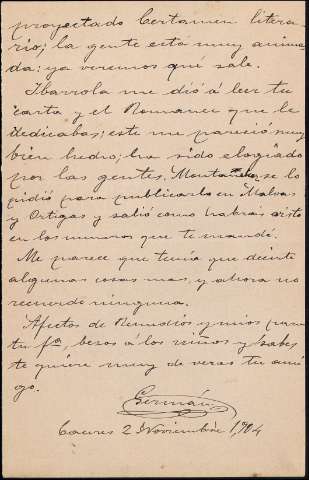 proyectado Certamen litera-
rio; la gente está muy anima-
da: ya veremos qué sale.
Ibarrola me dió á leer tu
carta y el Romance que le
dedicabas; este me pareció muy
bien hecho; ha sido elogiado
por las gentes. se lo
pidió para publicarlo en Malvas
y Ortigas y salió como habras visto
en los numeros que te mandé.
Me parece que tenia que decirte
algunas cosas mas, y ahora no
recuerdo ninguna.
Afectos de Remedios y mios para
tu fª, besos á los niños y sabes
te quiere muy de veras tu ami-
go.
Germán
Caceres 2 Noviembre 1,904